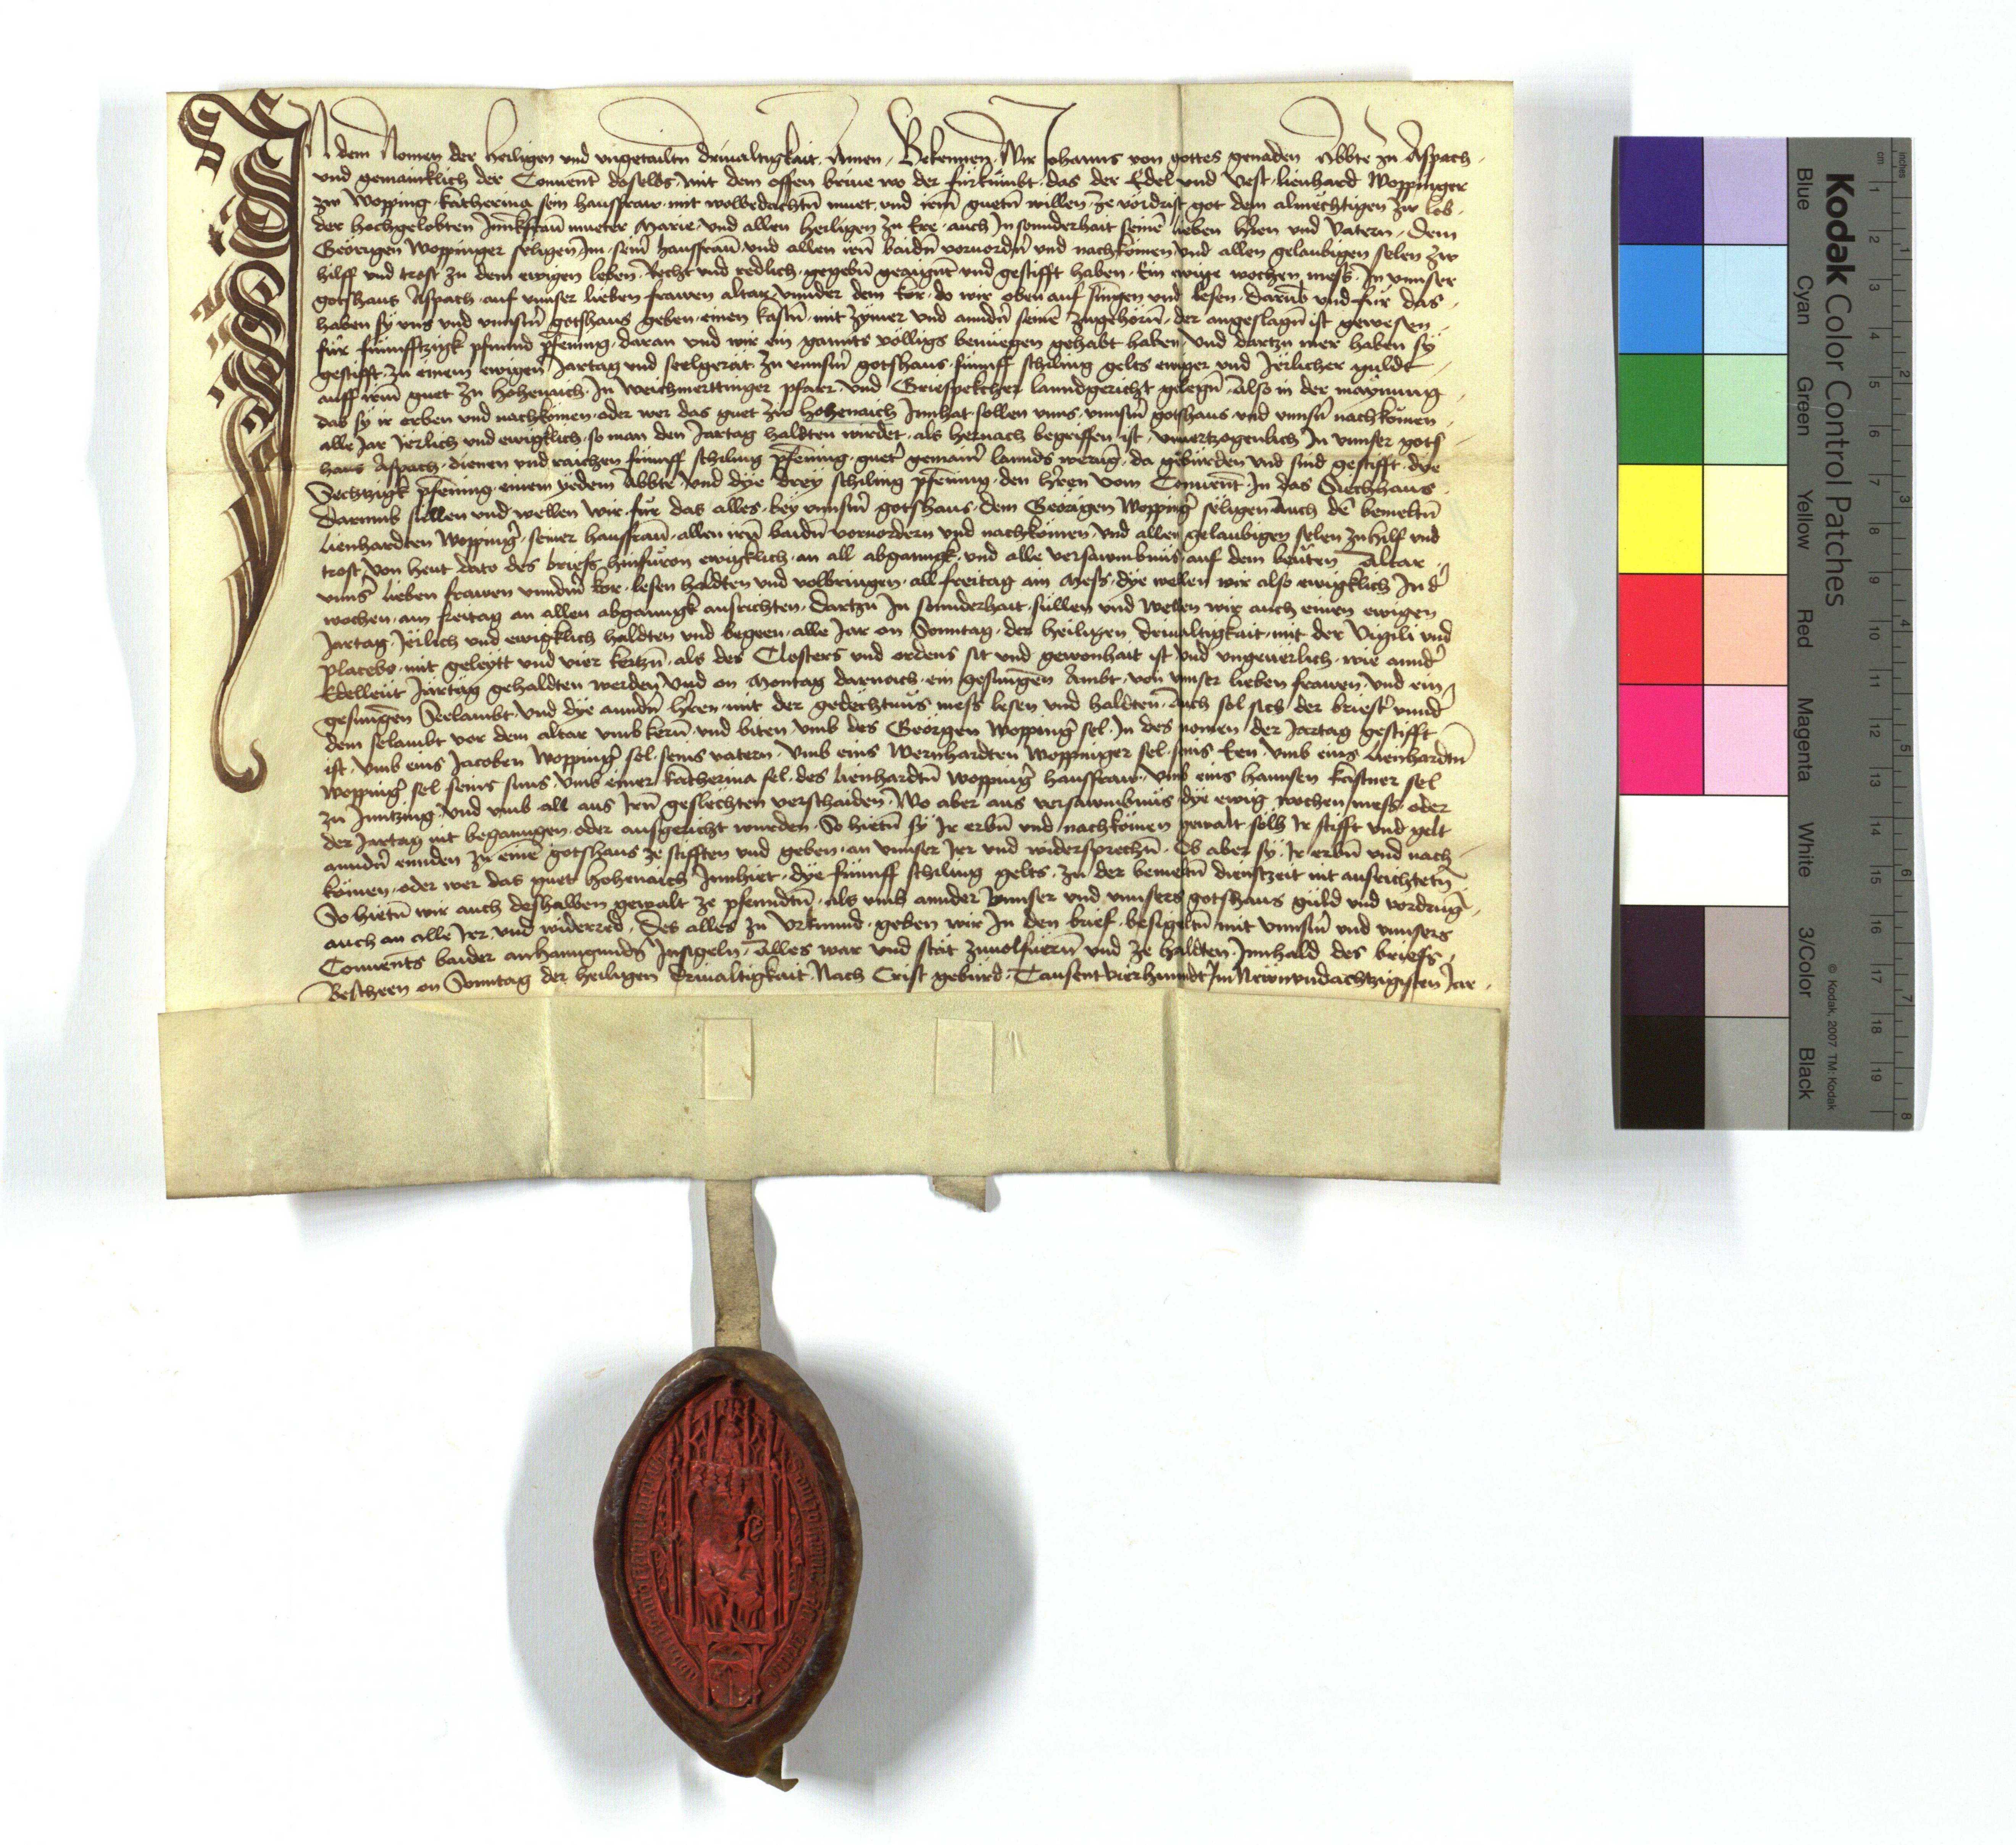 In dem Nomen der heiligen vnd vngetailtn drivaltigkait. Amen. Bekennen Wir Johanns von gottes genaden Abbte zu Aspach.
vnd gemaincklich der Conuent daselbs, mit dem offen briue wo der fürkumbt. das der Edel vnd Vest. lienhard Woppinger
zw Wopping. katherina sein hausfraw. mit wolbedachtn muet. vnd irem guetn willen. Ze vordrist got dem almechtigen zw lob.
der hochgelobten Junckfraw mueter Marie. vnd allen heiligen zu Ere. auch In sonnderhait seinē lieben hren vnd Vatern. Dem
Georigen Woppinger seligen Im. seinr hausfraw. vnd allen iren baidn vorvordrn vnd nachkomen. vnd allen gelaubigen selen zw
hilff vnd trost zu dem ewigen leben. Recht vnd redlich. gegebn geaignt vnd gestifft haben. Ein ewige wochen mess. In vnnser
gotshaus Aspach. auf vnnser lieben frawen altar. vnnder dem kor. do wir oben auf singen vnd lesen. darumb vnd für das.
haben sy vns vnd vnnserm gotshaus geben. einen kastn. mit zymer vnd anndrn seinē zugehorn. der angeslagn ist gewesen.
für fünfftzigk pfunnd pfening. daran vnd wir ein ganntz völligs benüegen gehabt haben. Vnd dartzu mer haben sy
gestifft. zu einem ewigen Jartag vnd seelgerät. zu vnnserm gotshaus. fünff schiling gelts ewiger vnd Jerlicher güldt.
auff irem guet zu hohenaich. In Weichmerttinger pfarr. vnd Griespekcher lanndgericht gelegn. Also in der maynung
das sy ir erben vnd nachkomen. oder wer das guet zw hohenaich Innhat. sollen vnns. vnnserm gotshaus. vnd vnnsern nachkomen.
alle Jar Jerlich vnd ewigklich. so man den Jartag haldten wirdet. als hernach begriffen ist. vnuertzogenlich In vnnser gots
haus Aspach. dienen vnd raichen fünnff schiling pfening. guetr gemainr lannds werung. da gebürden vnd sind gestifft. dye
Sechtzigk pfening. einem yedem Abbte. vnd dye drey schiling pfening. den hren vom Conuent. In das Siechhaus.
Darumb süllen vnd wellen wir. für das alles. bey vnnserm gotshaus. dem Georigen Woppingr seligen. Auch dē bemeltn
lienhardten Woppingr. seiner hausfraw. allen iren baidn vorvordern vnd nachkomen. vnd allen gelaubigen selen zu hilf vnd
trost. von heut dato des briefs hinfüron ewigklich. an all abganngk. vnd alle versawmbnüs. auf dem benanten Altar
vnnsr lieben frawen vnndrm kor. lesen haldten vnd volbringen. all freitag ain Mess. dye wellen wir also ewigklich In dr
wochen. am freitag an allen abganngk ausrichten. dartzu In sonnderhait. süllen vnd wellen wir auch einen ewigen
Jartag. Jerlich vnd ewigklich haldten vnd begeen. alle Jar on Sonntag. der heiligen drivaltigkait. mit der Vigili vnd
Placebo. mit geleytt vnd vier kertzn. als des Closters vnd ordens sit vnd gewonhait ist vnd vngeuerlich. wie anndr
Edelleut Jartag gehaldten werden. Vnd on Montag darnach. ein gesungen Ambt. von vnnser lieben frawen. vnd ein
gesungen Seelambt. vnd dye anndrn hren. mit der gedechtnus mess lesen vnd haldten. Auch sol sich der briestr vnndr
dem selambt vor dem altar vmbkern. vnd biten. vmb des Georgen Woppingr sel. In des nomen. der Jartag gestifft
ist. vmb eins Jacoben Woppingr sel. seins vatern. vmb eins Wernhardten Woppinger sel. seins Een. vmb eins lienhardtn
Woppingr sel. seins suns. vmb einer katherina sel. des lienhardtn Woppingr hausfraw. vmb eins hannsen kastner sel
zu Inntzing. vnd vmb all aus Jren geslechten verschaiden. Wo aber aus versawmbnüs. dye ewig wochen mess. oder
der Jartag nit beganngen. oder ausgericht wurden. So hietn sy Jr erbn vnd nachkömen gewalt sölh Jr stifft vnd gelt
anndrn ennden zu einē gotshaus ze stifften vnd geben. an vnnser Irr vnd widersprechn. Ob aber sy. Jr erbn vnd nach
kömen. oder wer das guet hohenaich Innhiet. dye fünnff schiling gelts. zu der bemeltn dienstzeit nit ausrichtetn
So hietn wir auch deshalben gewalt ze pfenndtn. als vmb annder vnnser vnd vnnsers gotshaus güld vnd vordrung.
auch an alle Irr. vnd widerred. Des alles zu Vrkunnd. geben wir In den brief. besigeltn mit vnnserm vnd vnnsers
Conuents baider anhanngunden Insigeln. Alles war vnd stät zuuolfüern vnd ze haldten. Innhald des briefs.
Bescheen on Sonntag der heiligen Drivaltigkait. Nach Crist gebürd. Tausent vierhunndt Im Newnvndachtzigisten Jar.
Kodak Color Control Patches
Blue Cyan Green Yellow Red Magenta White 3/Color Black
© Kodak, 2007 TM: Kodak
cm 1 2 3 4 5 6 7 8 9 10 11 12 13 14 15 16 17 18 19
inches 1 2 3 4 5 6 7 8